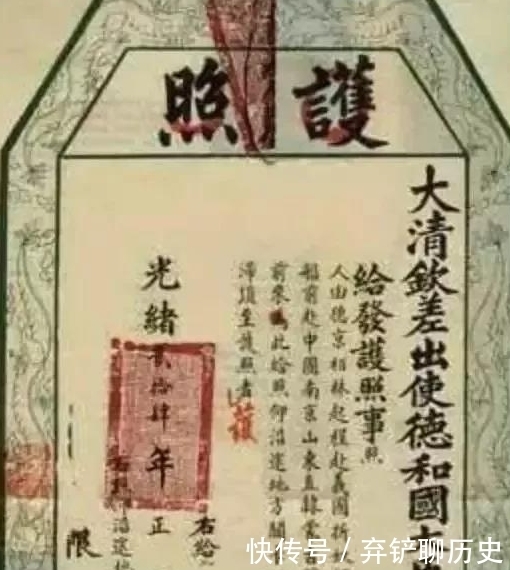 護照
大清欽差出使德和國
給發護照事照
人由德京柏林起程赴義國
船前赴中國南京山東直隸
前來為此給照仰沿途地方關
滯須至護照者
護
右給
光緒貳拾肆年正
限
快传号 / 弃铲聊历史